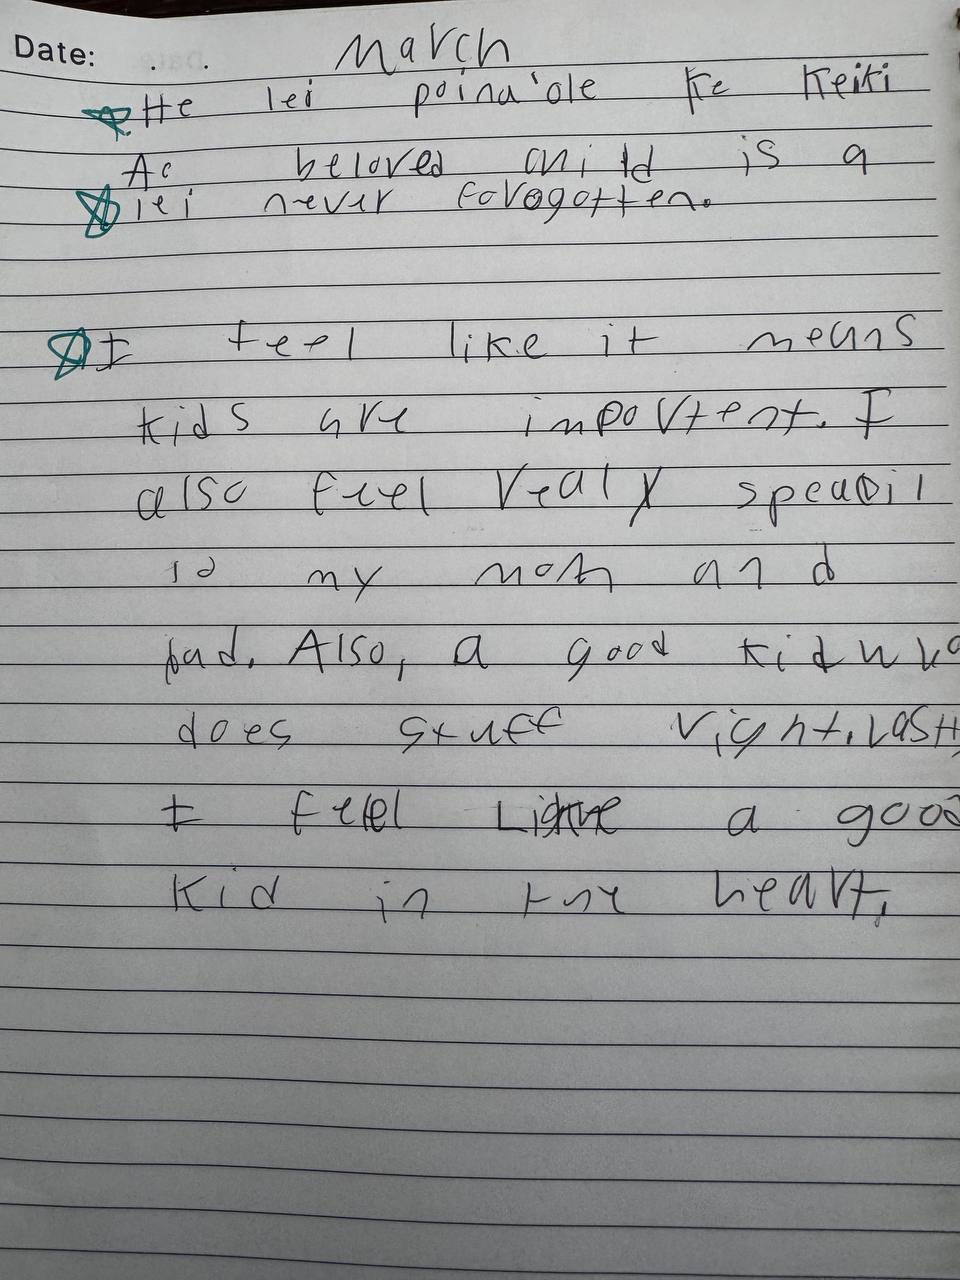 Date: . . March
He lei poina'ole Ke Keiki
Ac beloved child is a
lei never forogotten.
I feel like it means
kids are importent. I
also feel realy speacil
to my mom and
dad. Also, a good kid who
does stuff right. Last,
I feel Like a good
Kid in the heart.